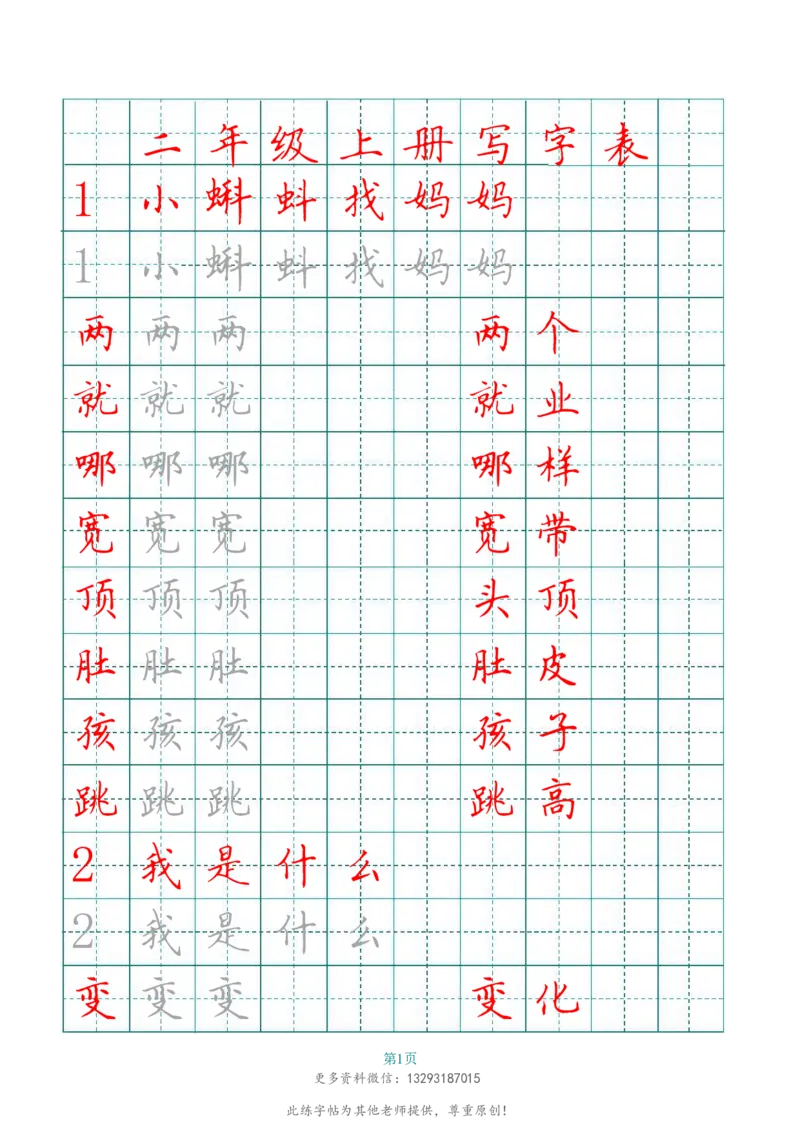 二年级上册写字表
1 小蝌蚪找妈妈
1 小蝌蚪找妈妈
两两两 两个
就就就 就业
哪哪哪 哪样
宽宽宽 宽带
顶顶顶 头顶
肚肚肚 肚皮
孩孩孩 孩子
跳跳跳 跳高
2 我是什么
2 我是什么
变变变 变化
第1页
更多资料微信：13293187015
此练字帖为其他老师提供，尊重原创！